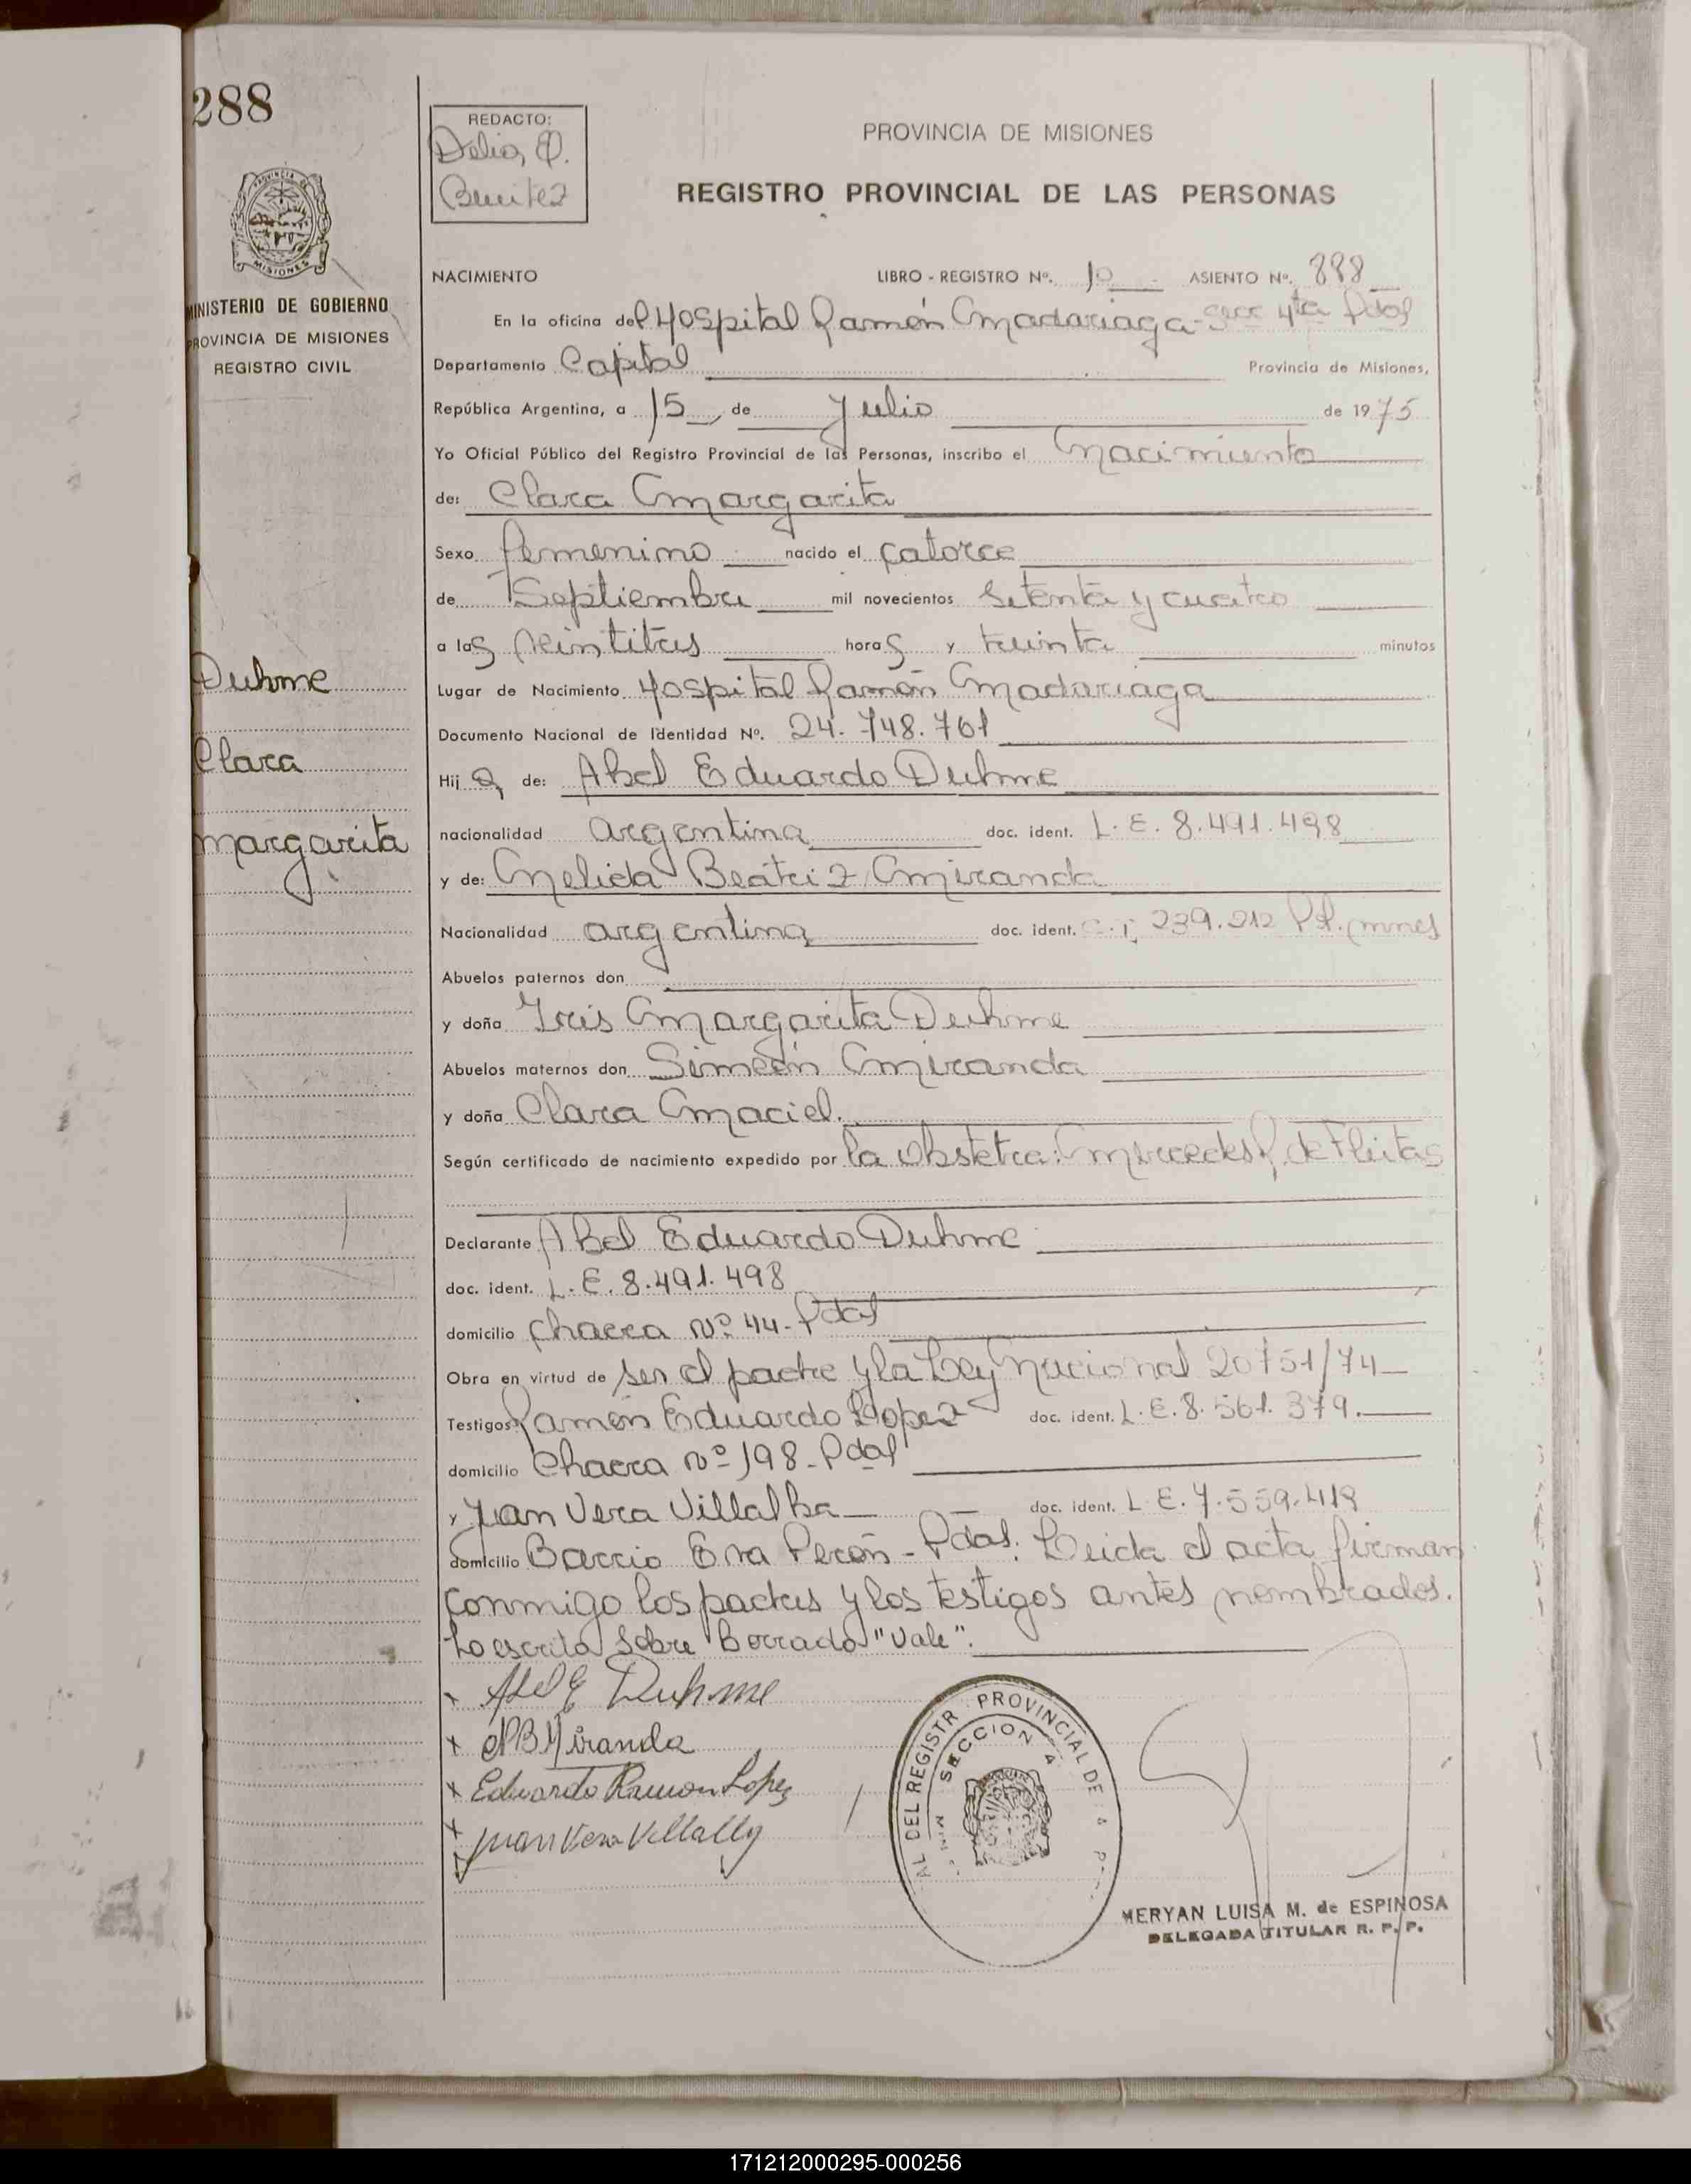 288
REDACTO:
Delio, D.
Benitez
PROVINCIA DE MISIONES
REGISTRO PROVINCIAL DE LAS PERSONAS
MISIONES
MINISTERIO DE GOBIERNO
PROVINCIA DE MISIONES
REGISTRO CIVIL
NACIMIENTO LIBRO - REGISTRO Nº. 10 ASIENTO Nº. 888
En la oficina del Hospital Ramón Madariaga - Secc 4ta Pdas
Departamento Capital Provincia de Misiones,
República Argentina, a 15 de Julio de 1975
Yo Oficial Público del Registro Provincial de las Personas, inscribo el Nacimiento
de: Clara Margarita
Sexo femenino nacido el catorce
de Septiembre mil novecientos setenta y cuatro
a las veintitres horas y treinta minutos
Lugar de Nacimiento Hospital Ramón Madariaga
Documento Nacional de Identidad Nº. 24.748.761
Duhme
Clara
Margarita
Hija de: Abel Eduardo Duhme
nacionalidad argentina doc. ident. L.E. 8.491.498
y de: Nelida Beatriz Miranda
Nacionalidad argentina doc. ident. C.I. 239.212 Pol. Mnes
Abuelos paternos don
y doña Iris Margarita Duhme
Abuelos maternos don Simeón Miranda
y doña Clara Maciel.
Según certificado de nacimiento expedido por la obstetra: Mercedes de Fleitas
Declarante Abel Eduardo Duhme
doc. ident. L.E. 8.491.498
domicilio Chacra Nº 44 - Pdas
Obra en virtud de ser el padre y la Ley Nacional 20751/74
Testigos: Ramón Eduardo Lopez doc. ident. L.E. 8.561.379.
domicilio Chacra Nº 198 - Pdas
y Juan Vera Villalba doc. ident. L.E. 7.559.418
domicilio Barrio Eva Perón - Pdas. Leida el acta firman
conmigo los padres y los testigos antes nombrados.
Lo escrito sobre Borrado "Vale".
x Abel E Duhme
x NB Miranda
x Eduardo Ramon Lopez
x Juan Vera Villalba
AL DEL REGISTR PROVINCIAL DE
SECCION 4
MERYAN LUISA M. de ESPINOSA
DELEGADA TITULAR R. P. P.
171212000295-000256